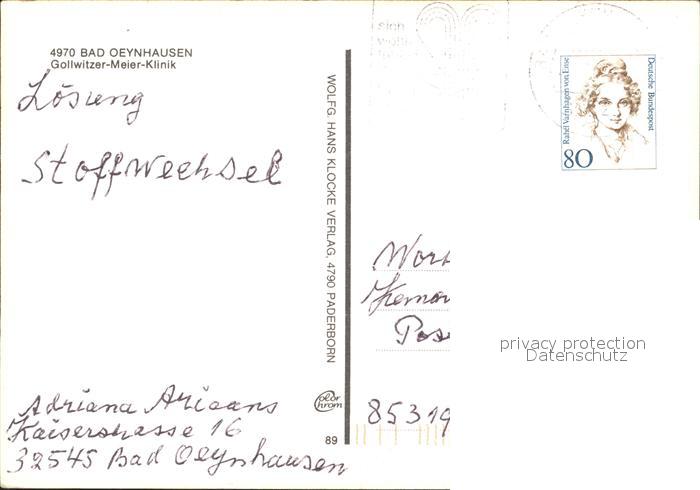 4970 BAD OEYNHAUSEN
Gollwitzer-Meier-Klinik
Lösung
Stoffwechsel
Adriana Ariaans
Kaiserstrasse 16
32545 Bad Oeynhausen
WOLFG. HANS KLOCKE VERLAG, 4790 PADERBORN
Color
chrom
89
sich
Deutsche Bundespost
Rahel Varnhagen von Ense
80
Wort
Pos
privacy protection
Datenschutz
85319